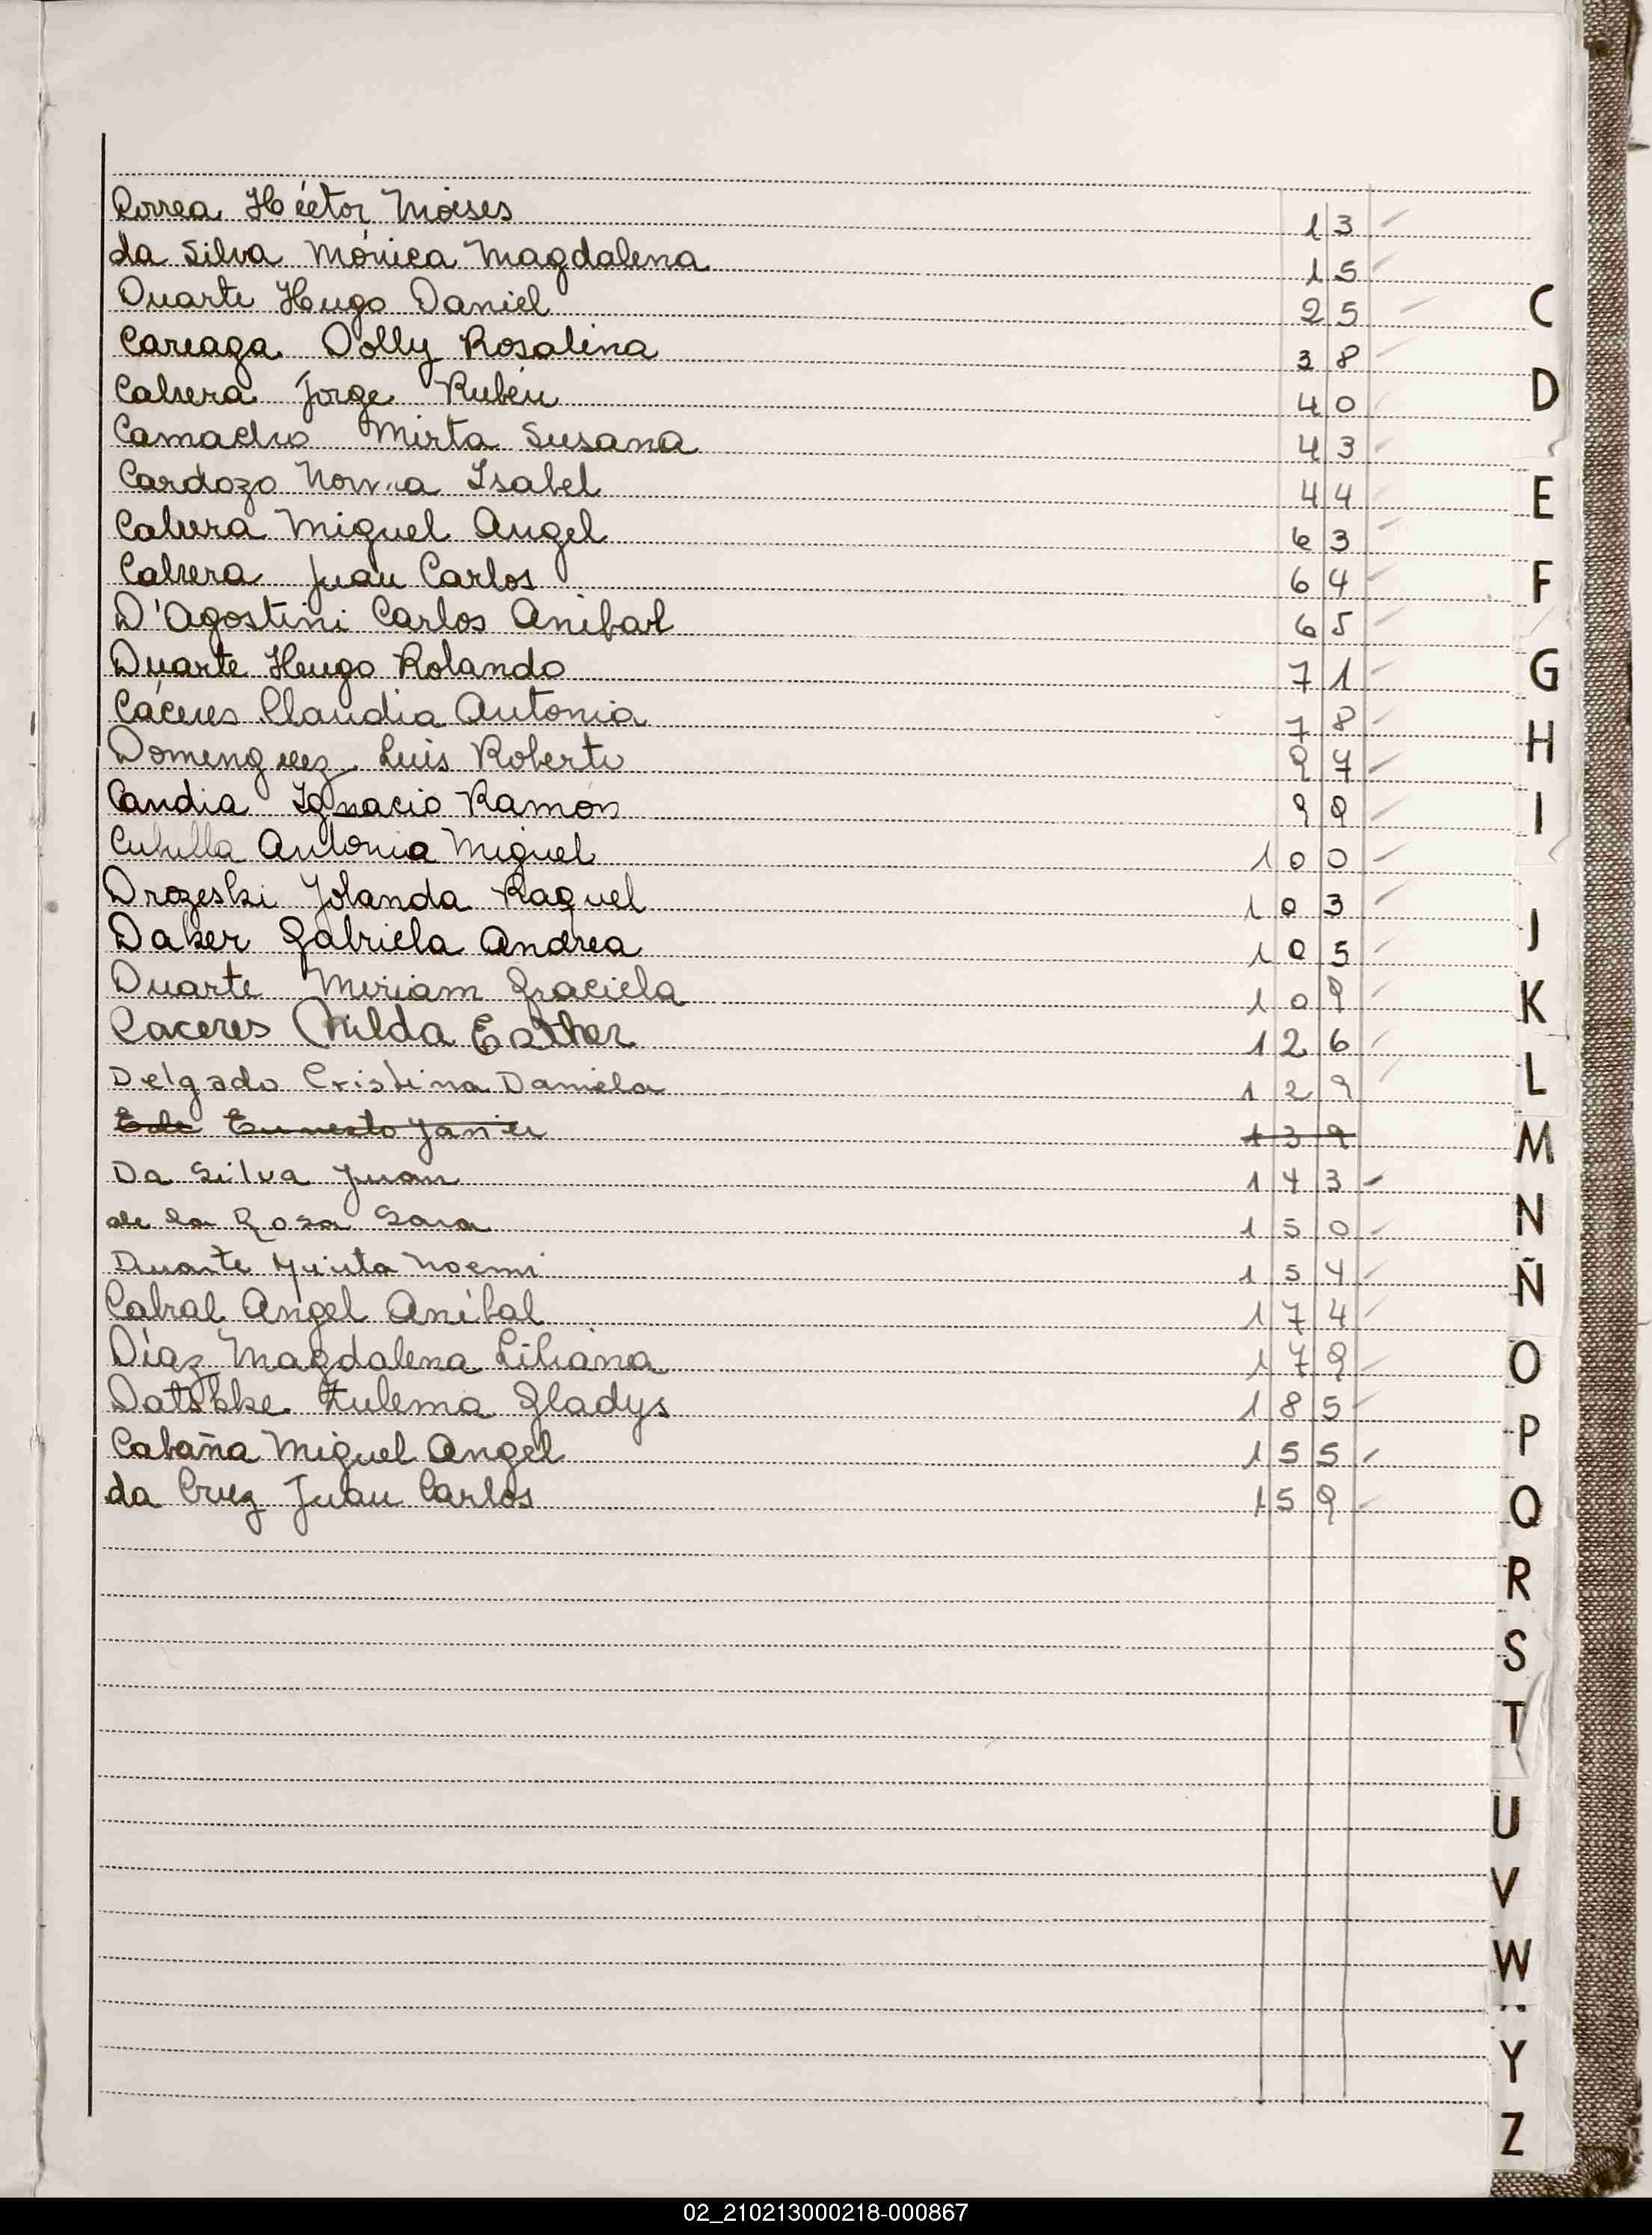 Correa Héctor Moises 13
da Silva Mónica Magdalena 15
Duarte Hugo Daniel 25
Careaga Dolly Rosalina 38
Cabrera Jorge Rubén 40
Camacho Mirta Susana 43
Cardozo Norma Isabel 44
Cabrera Miguel Angel 63
Cabrera Juan Carlos 64
D'Agostini Carlos Anibal 65
Duarte Hugo Rolando 71
Cáceres Claudia Antonia 78
Domenguez Luis Roberto 97
Candia Ignacio Ramón 99
Cubilla Antonia Miguel 100
Drozeski Yolanda Raquel 103
Daker Gabriela Andrea 105
Duarte Miriam Graciela 109
Caceres Nilda Esther 126
Delgado Cristina Daniela 129
Ernesto Javier 139
Da Silva Juan 143
de la Rosa Sara 150
Duarte Mirta Noemi 154
Cabral Angel Aníbal 174
Díaz Magdalena Liliana 179
Zulema Gladys 185
Cabaña Miguel Angel 155
da Cruz Juan Carlos 159
C
D
E
F
G
H
I
J
K
L
M
N
Ñ
O
P
Q
R
S
T
U
V
W
Y
Z
02_210213000218-000867